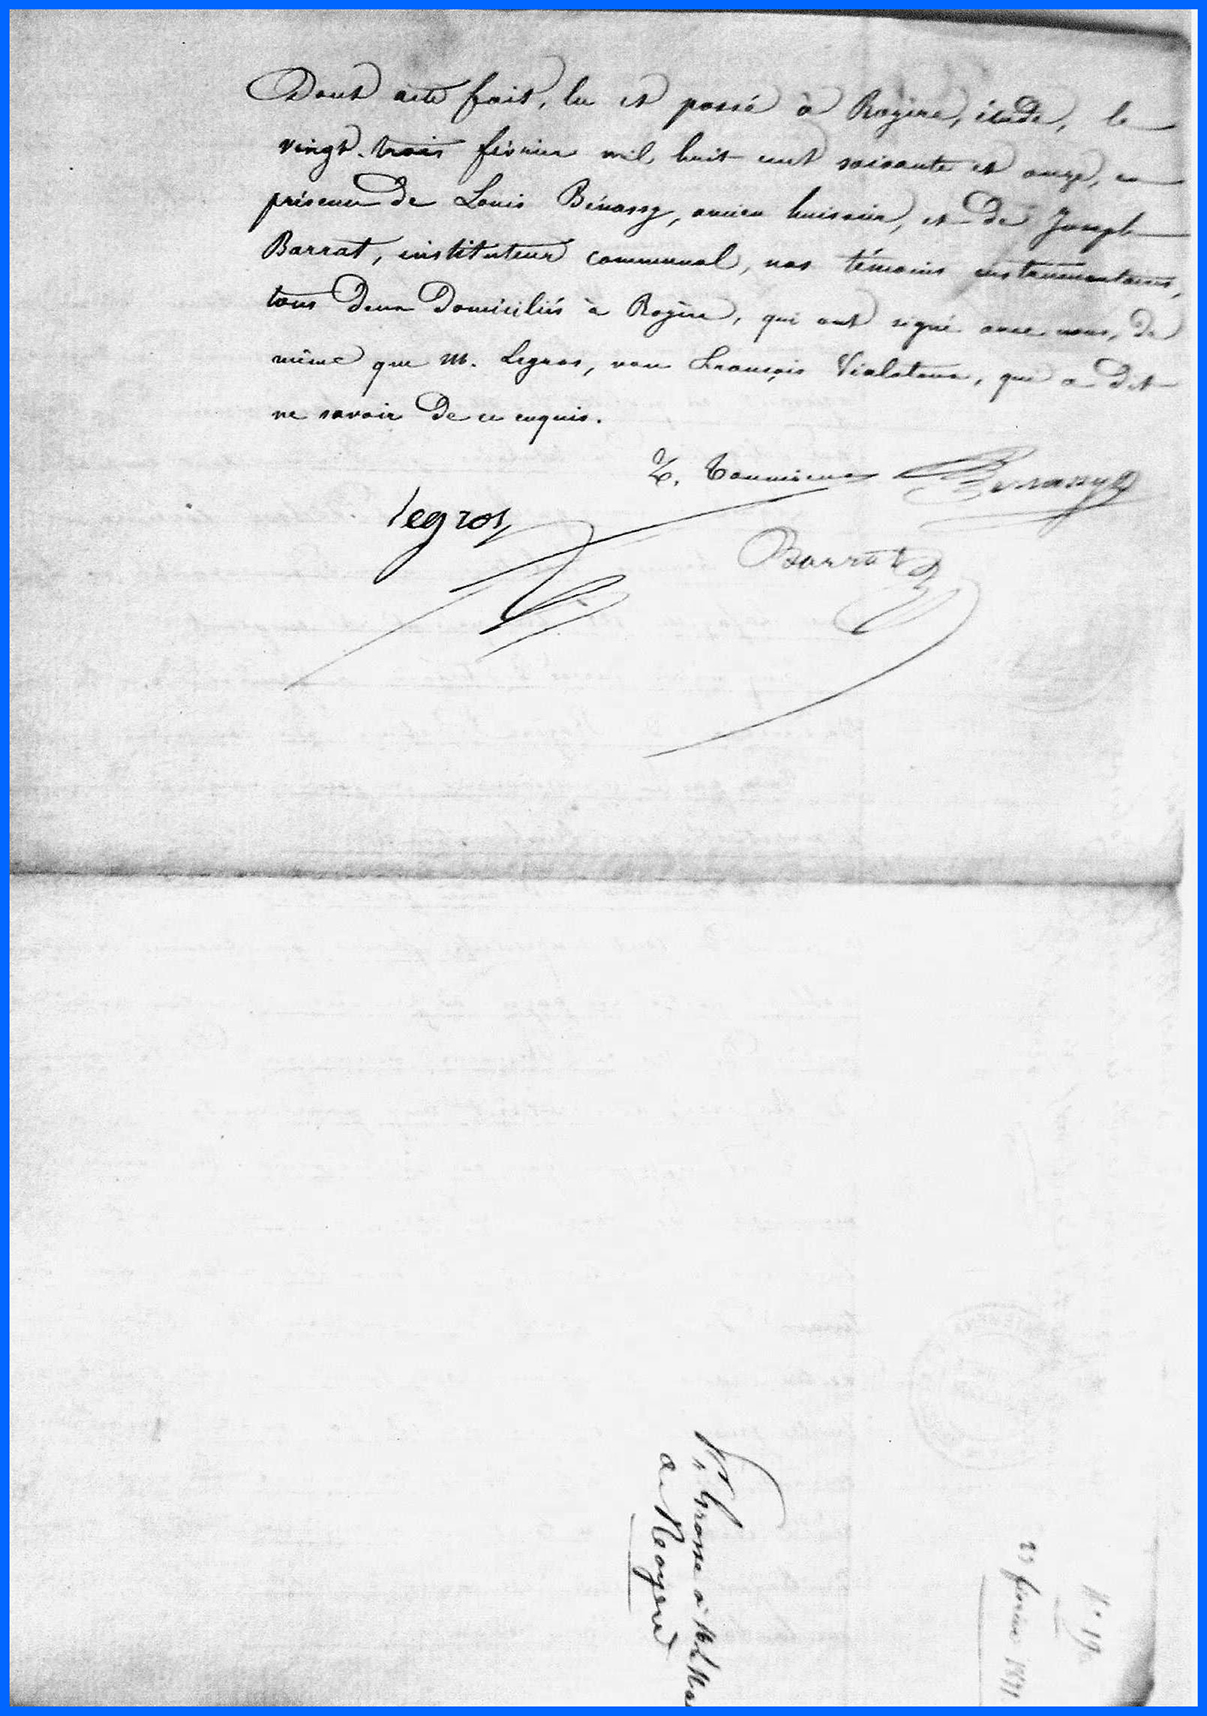 Dont acte fait, lu et passé à Royère, étude, le
vingt-trois février mil huit cent soixante et onze, en
présence de Louis Bénassy, ancien huissier, et de Joseph
Barrat, instituteur communal, nos témoins instrumentaires,
tous deux domiciliés à Royère, qui ont signé avec nous, de
même que M. Legros, non François Vialatoux, qui a dit
ne savoir de ce enquis.
Benassy
Legros
Barrat
Grosse à M. le
à Royère
23 février 1871
N° 19